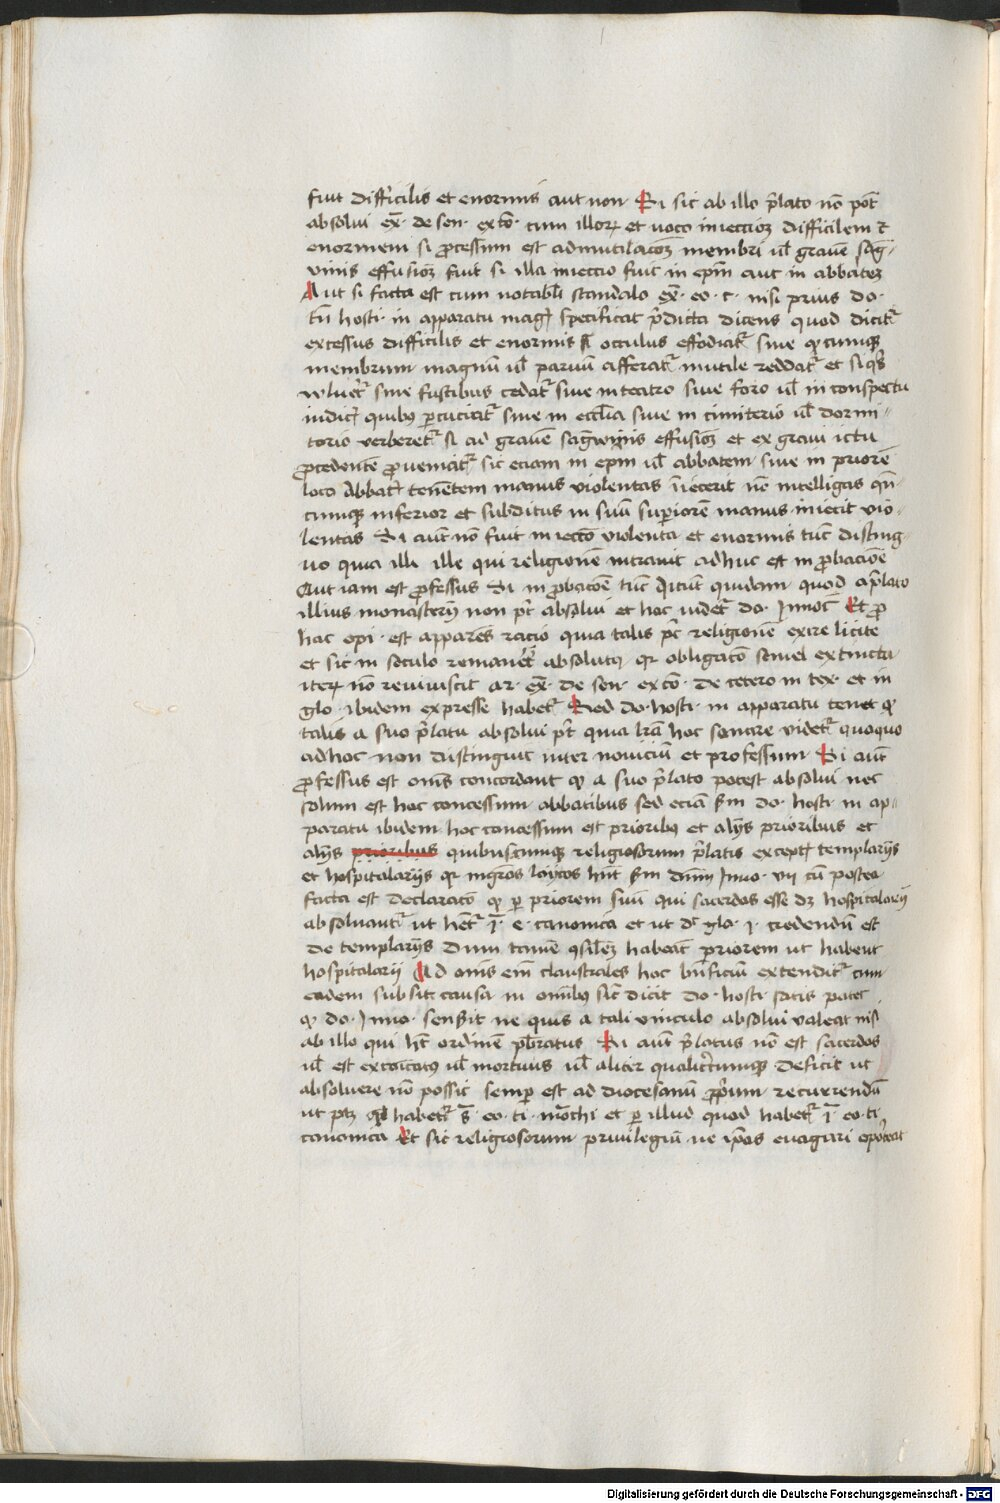 fuit difficilis et enormis aut non Si sic ab illo p̄lato nō pōt
absolui ex̄· de sen· exco̅· cum illoꝝ et uoco iniecciōꝫ difficilem ⁊
enormem si ꝓcessum est ad mutilacōꝫ membri ul̄ grauē sag̅-
uinis effusiōꝫ fuit si illa inieccio fuit in ep̄m aut in abbateꝫ
Aut si facta est cum notabl̄i scandalo ex̄· eo· c· nisi prius do·
tn̄ hosti· in apparatu mag̅ specificat p̄dicta dicens quod dicit᷑
excessus difficilis et enormis si occulus effodiat᷑ siue qͥcumqꝫ
membrum magnū ul̄ paruū afferat᷑ mutile reddat᷑ et siqͥs
siue fustibus cedat᷑ siue in teatro siue foro ul̄ in conspectu
iudic̄ quibꝰ ꝑcucit᷑ siue in eccl̄ia siue in cimiterio ul̄ dormi-
torio verberet᷑ si ad grauē sagwinis effusiōꝫ et ex graui ictu
ꝓcedentē ꝓueniat᷑ sic eciam in ep̄m ul̄ abbatem siue in priorē
loco Abbat̄ tenētem manus violentas īiecerit nō intelligas qn̄-
cumqꝫ inferior et subditus in suū suꝑiorē manus iniecit vio-
lentas Si aut̄ nō fuit iniecctō violenta et enormis tūc disting-
uo quia ille qui religionē intrauit adhuc est in ꝓbacionē
Aut iam est ꝓfessus Si in ꝓbacōe tūc dicūt quidam quod a p̄lato
illius monasterij non pōt absolui et hoc uidet᷑ do· Innoc̄ Et ꝓ
hac opi· est apparēs racio quia talis pōt religionē exire licite
et sic in seculo remanet absolutꝰ qꝛ obligacō semel extincta
iteꝝ nō reuiuiscit ar· ex̄· de sen· exco̅· de cetero in tex· et in
glo· ibidem expresse habet᷑ Sed do· hosti· in apparatu tenet qͩ
talis a suo p̄latu absolui pōt quia lr̄a hoc sonare videt᷑ quoquo
ad hoc non distinguit inter nouiciū et professum Si aut̄
ꝓfessus est om̄s concordant qͩ a suo p̄lato potest absolui nec
solum est hoc concessum abbatibus sed eciā sm̄ do· hosti· in ap-
paratu ibidem hoc concessum est prioribꝰ et alijs prioribus et
alijs prioribus quibuscumqꝫ religiosorum p̄latis except̄ templarijs
et hospitalarijs qꝛ mgr̄os laycos hn̄t sm̄ dn̄m Inno· vij tn̄ postea
facta est declaracō qͩ ꝑ priorem suū qui sacerdos esse dꝫ hospitalarij
absoluant᷑ ut het᷑ ī· e· canonica et ut dꝭ glo· j· credendū est
de templarijs dum tamē ꝯsilēꝫ habeāt priorem ut habent
hospitalarij Ad om̄s em̄ claustrales hoc bn̄ficiū extendit᷑ cum
eadem subsit causa in om̄ibꝰ sic dicit do· hosti· satis patet
qͩ do· Inno· sensit ne quis a tali vinculo absolui valeat nisi
ab illo qui ht̄ ordinē pb̄ratus Si aut̄ p̄latus nō est sacerdos
ul̄ est exco̅icatꝰ ul̄ mortuus ul̄ aliter qualit̄cumqꝫ deficit ut
absoluere nō possit semꝑ est ad diocesanū ꝓprium recurrendū
ut ptꝫ habet᷑ s̄· eo· ti· mōchi et ꝑ illud quod habet᷑ ī· eo· ti·
canonica Et sic religiosorum priuilegiū ne ip̄os euagiari oporteat
Digitalisierung gefördert durch die Deutsche Forschungsgemeinschaft - DFG